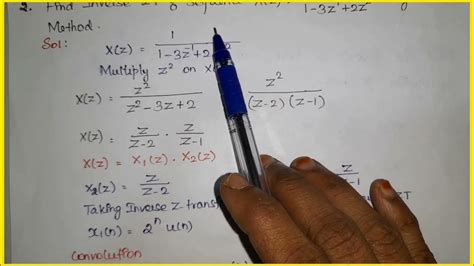 2. Find Inverse Z of Sequence X(z) = 1-3z⁻¹+2z⁻²
Method.
Sol:
X(z) = 1 / 1-3z⁻¹+2
Multiply z² on
X(z) = z² / z²-3z+2 z² / (z-2)(z-1)
X(z) = z/z-2 . z/z-1
X(z) = X₁(z) . X₂(z)
x₂(z) = z/z-2
Taking Inverse Z trans ZT
x₁(n) = 2ⁿ u(n)
Convolution